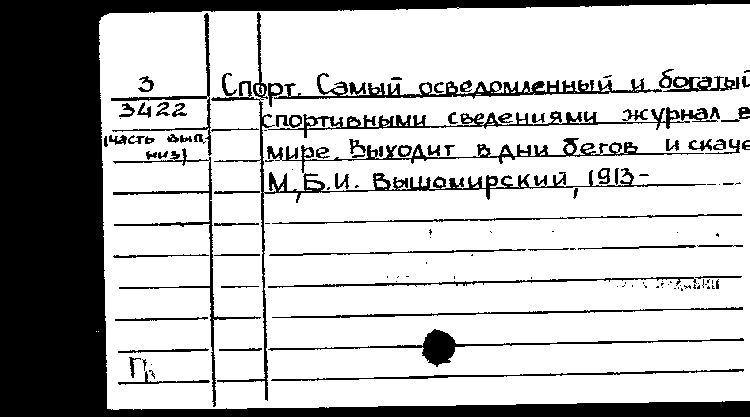 3
3422
(часть вып.
низ)
Спорт. Самый осведомленный и богатый
спортивными сведениями журнал в
мире. Выходит в дни бегов и скаче
М., Б.И. Вышомирский, 1913-